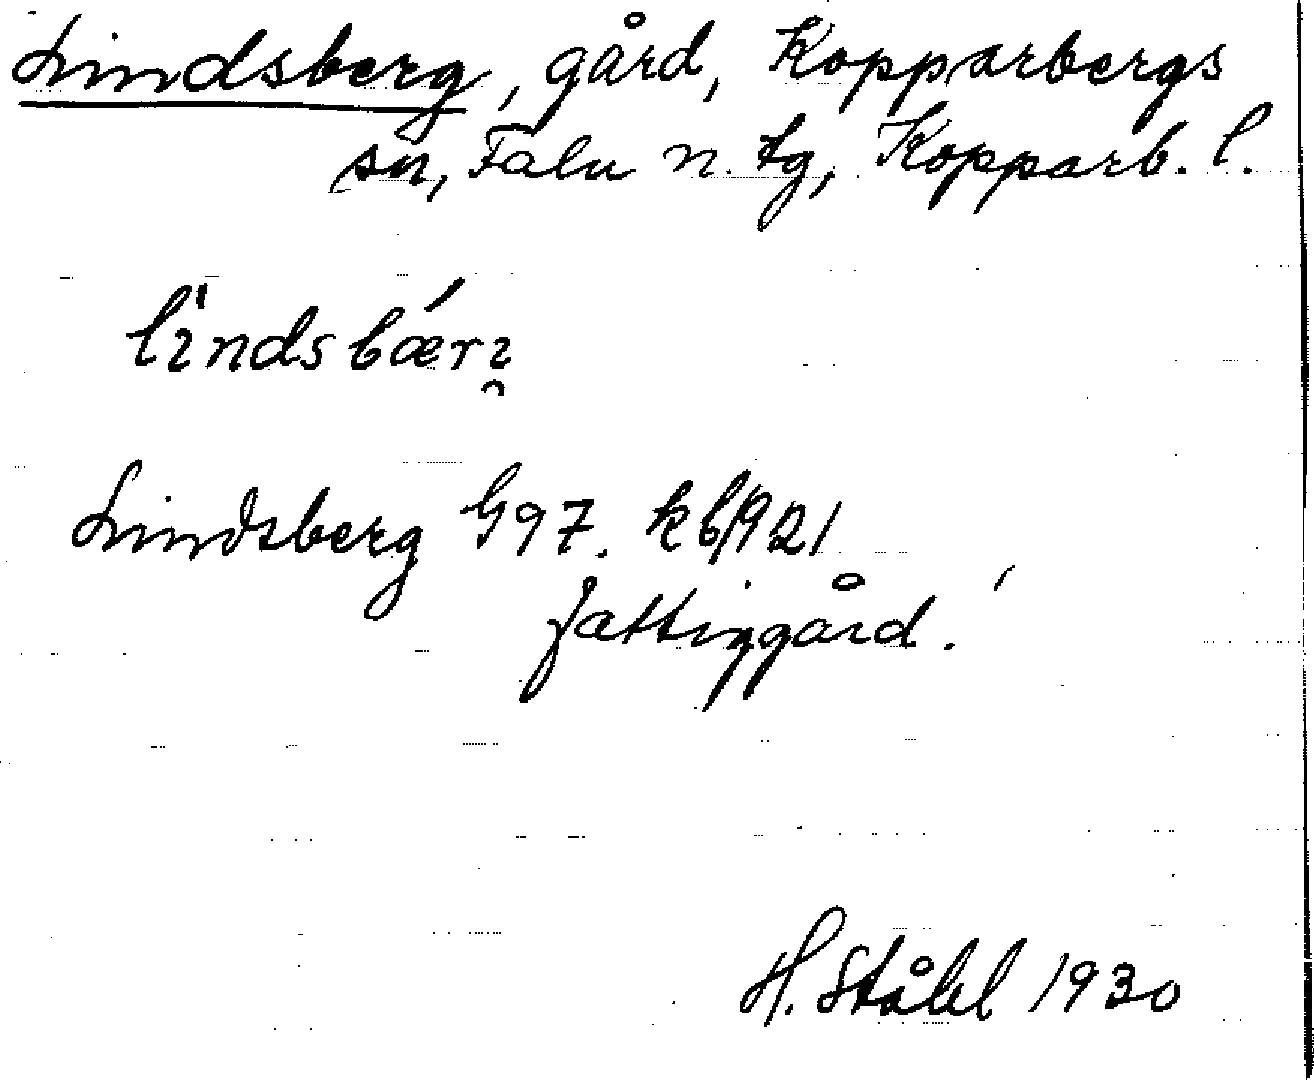 Lindsberg, gård, Kopparbergs
sn, Falu n. tg, Kopparb. l.
Lindsberg G97. kb1921
fattiggård.
H. Ståhl 1930